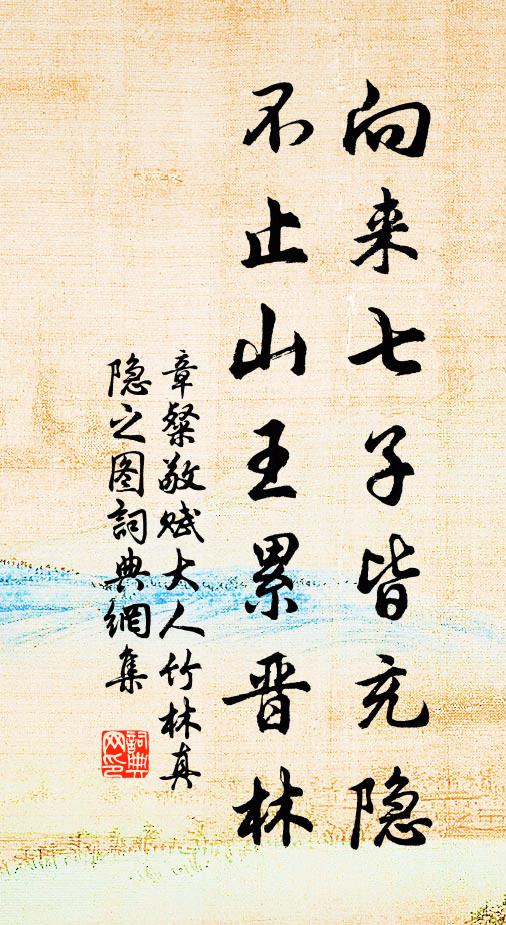 向来七子皆充隐
不止山王累晋林
章粲敬赋大人竹林真
隐之图詞典網集
詞典
网印